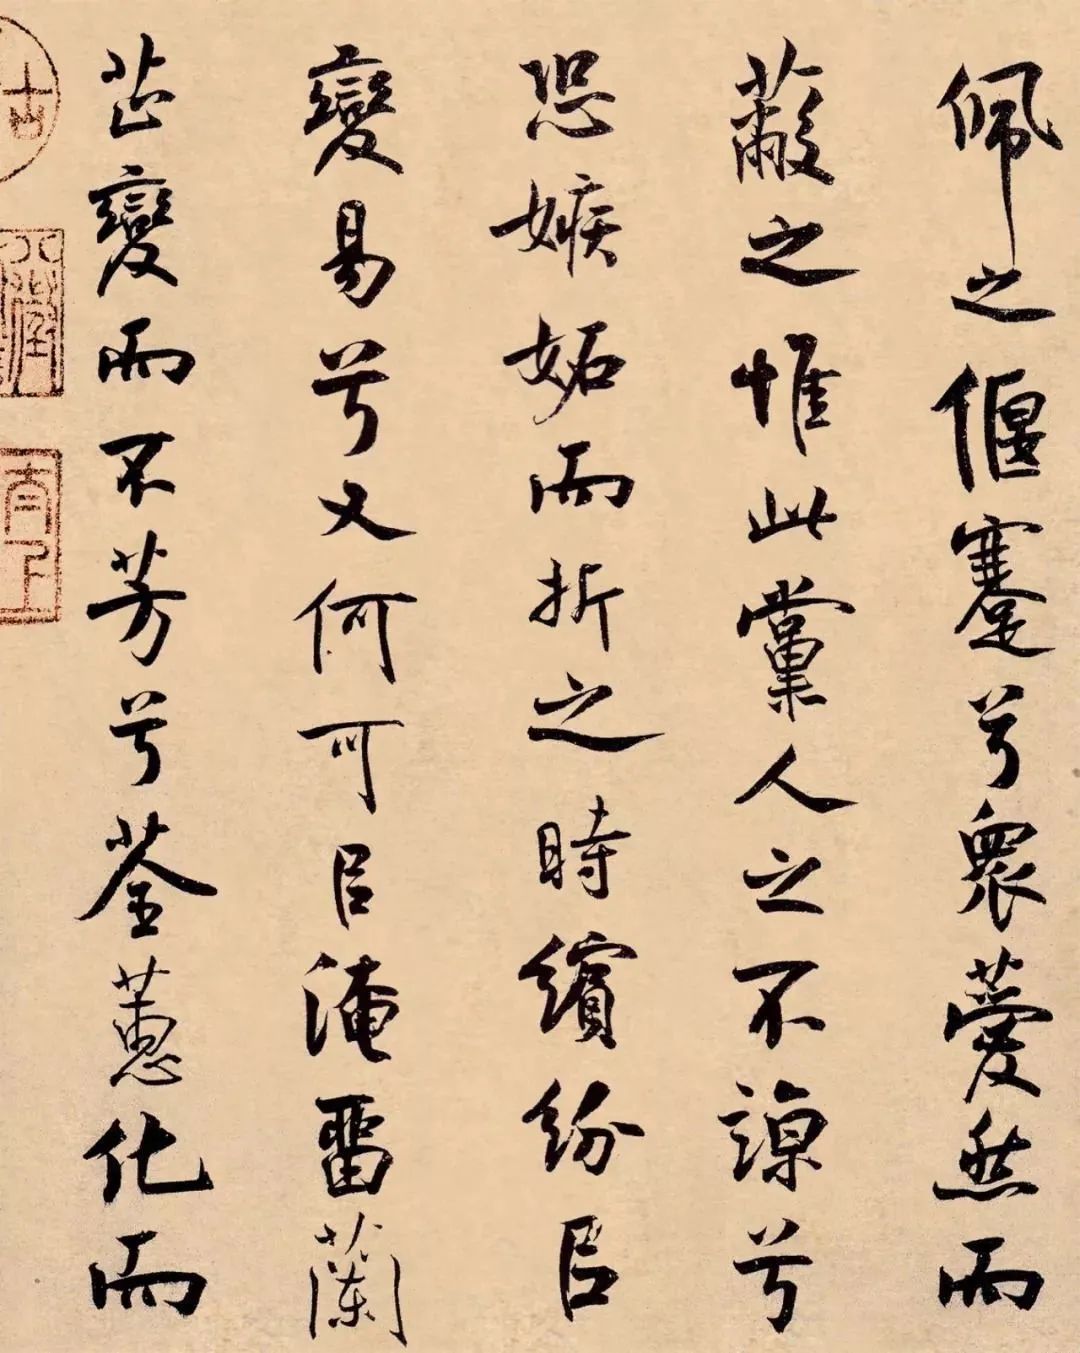 佩之偃蹇兮眾薆然而
蔽之惟此黨人之不諒兮
恐嫉妬而折之時繽紛㠯
變易兮又何可㠯淹畱蘭
芷變而不芳兮荃蕙化而